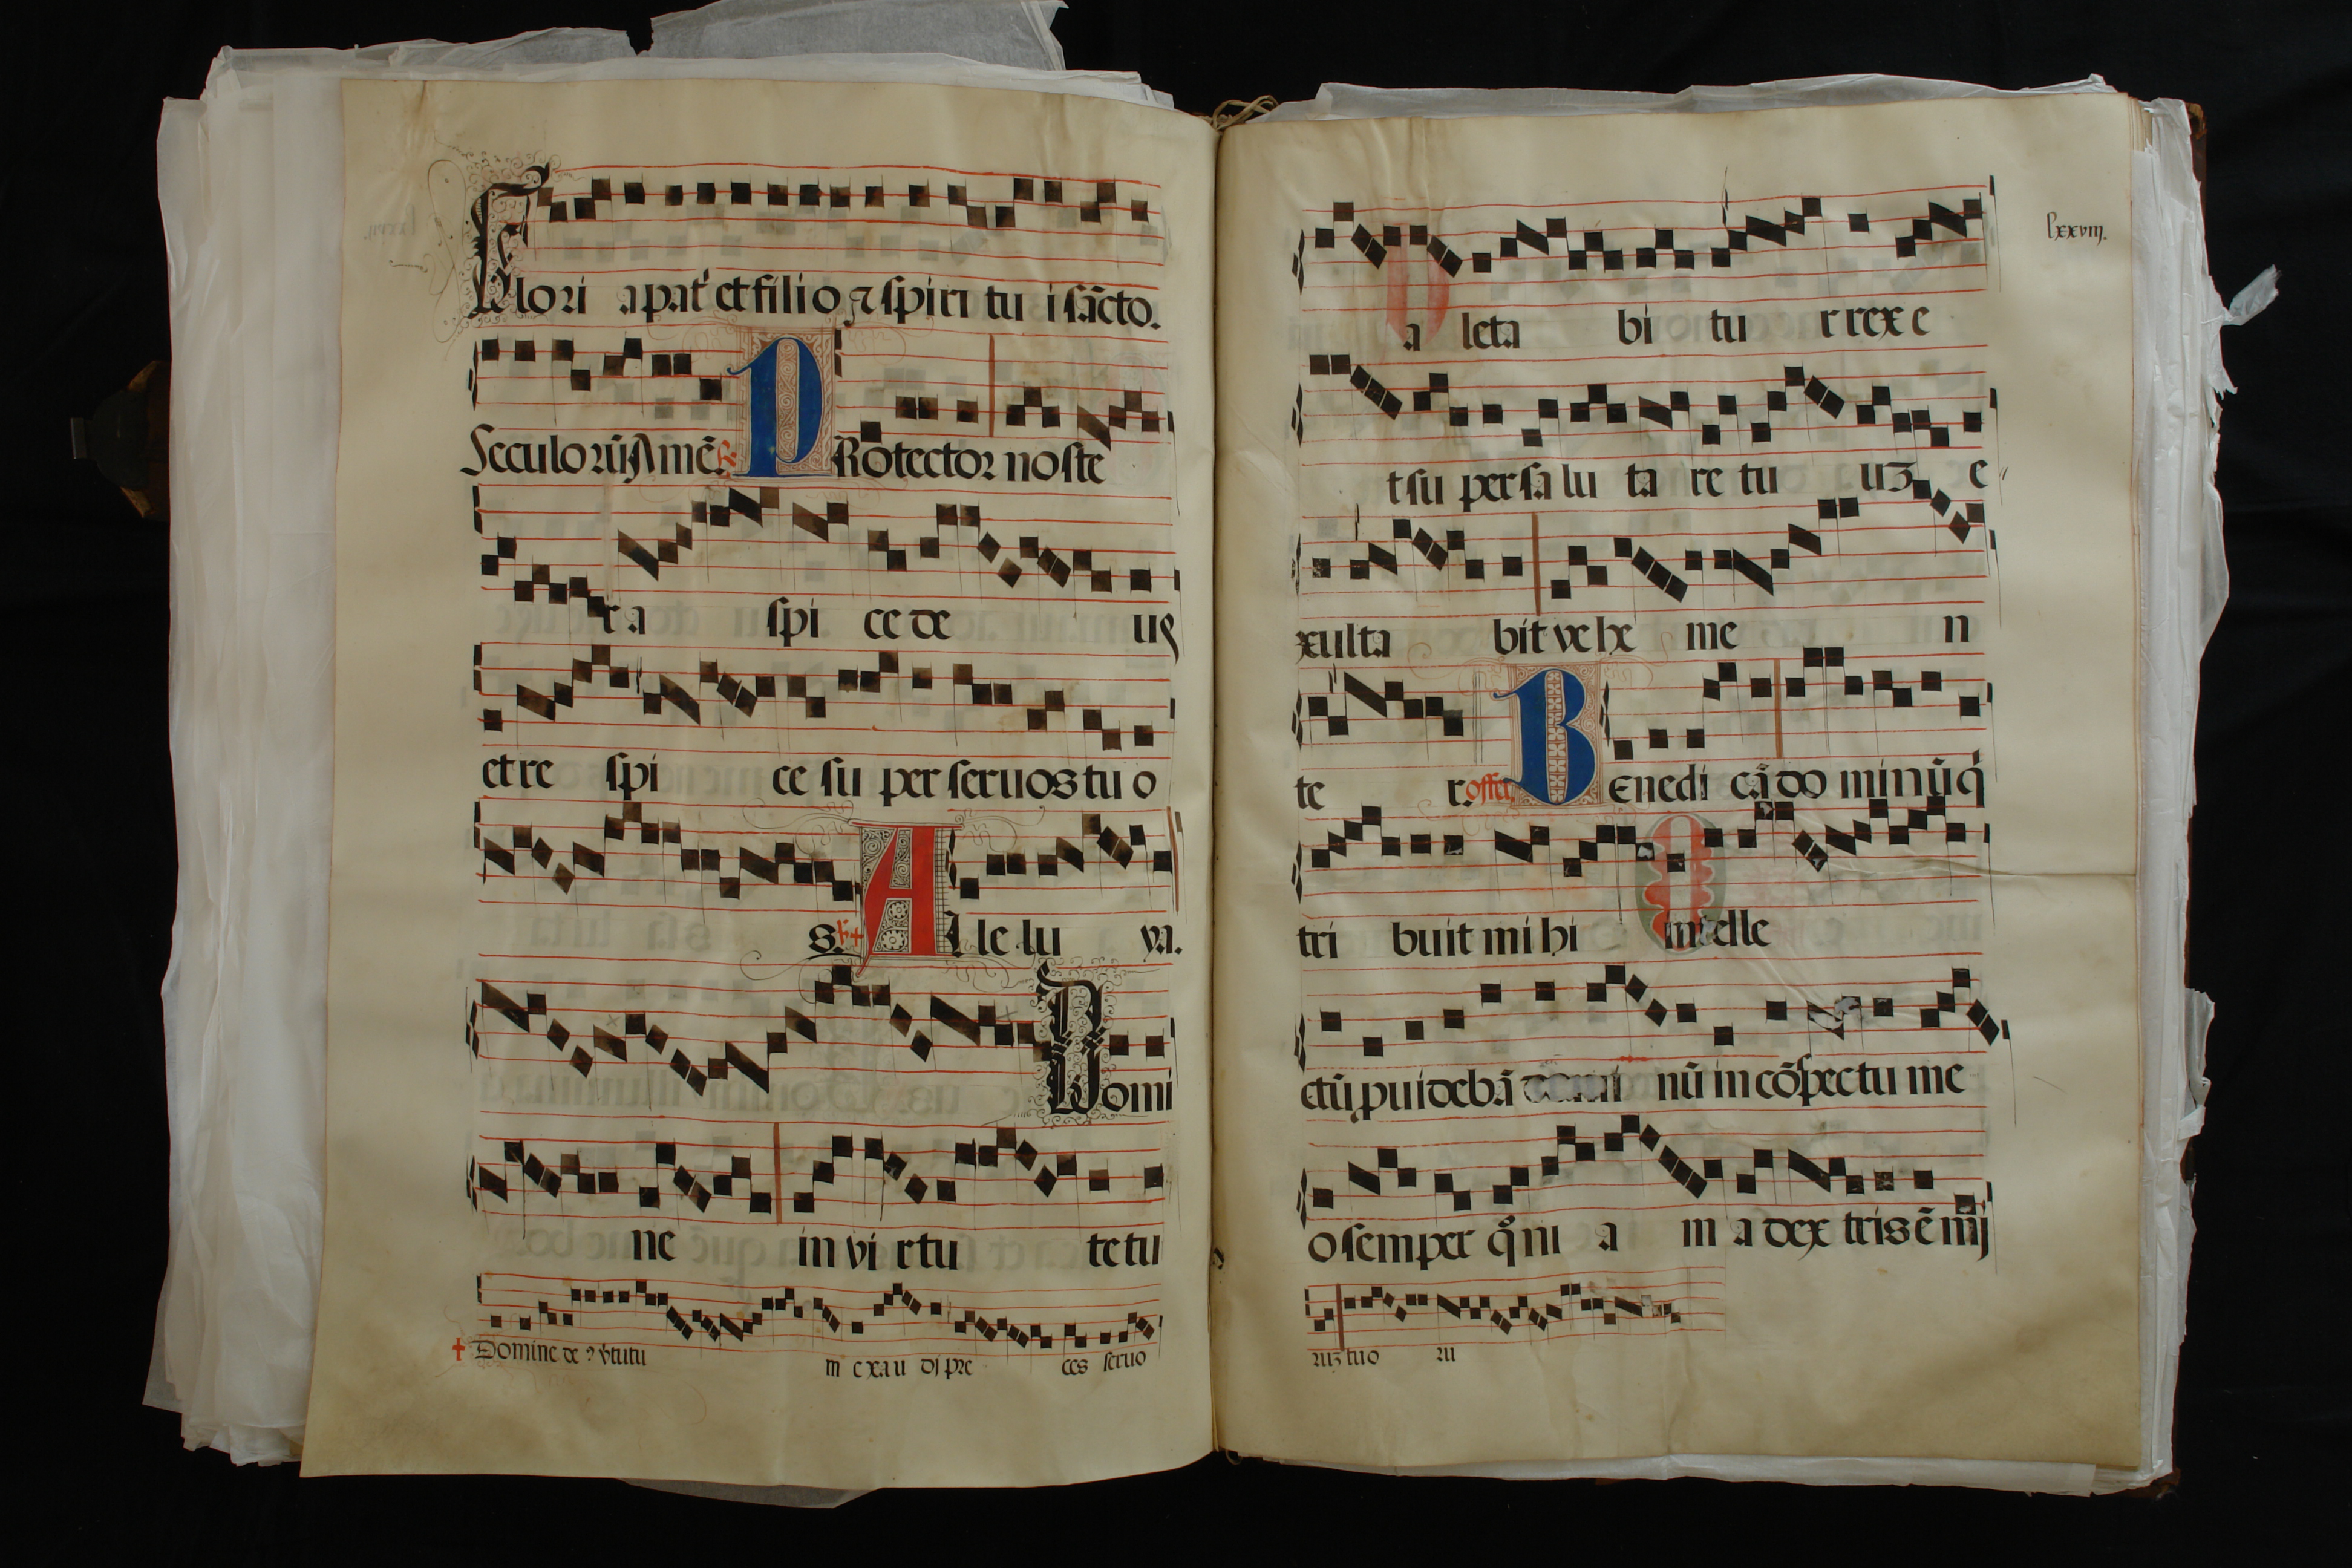 Glori a pat̉ et filio ⁊ spiri tu i sācto.
Seculorū Amē. R̸. PRotector noste
r a spi ce de us
et re spi ce su per seruos tu o
s. Al le lu ya.
Domi
ne in vi rtu te tu
✝ Domine de ꝰ v̉tutu m exau di pre ces seruo
lxxviij.
a leta bi tu r rex e
t su per salu ta re tu uꝫ e
xulta bit ve he me n
te r. offer. Benedi cā do minū q̇
tri buit mi hi intelle
ctū puidebā domi nū in cōspectu me
o semper qm̄ a m a dex tris ē mj
ruꝫ tuo ru